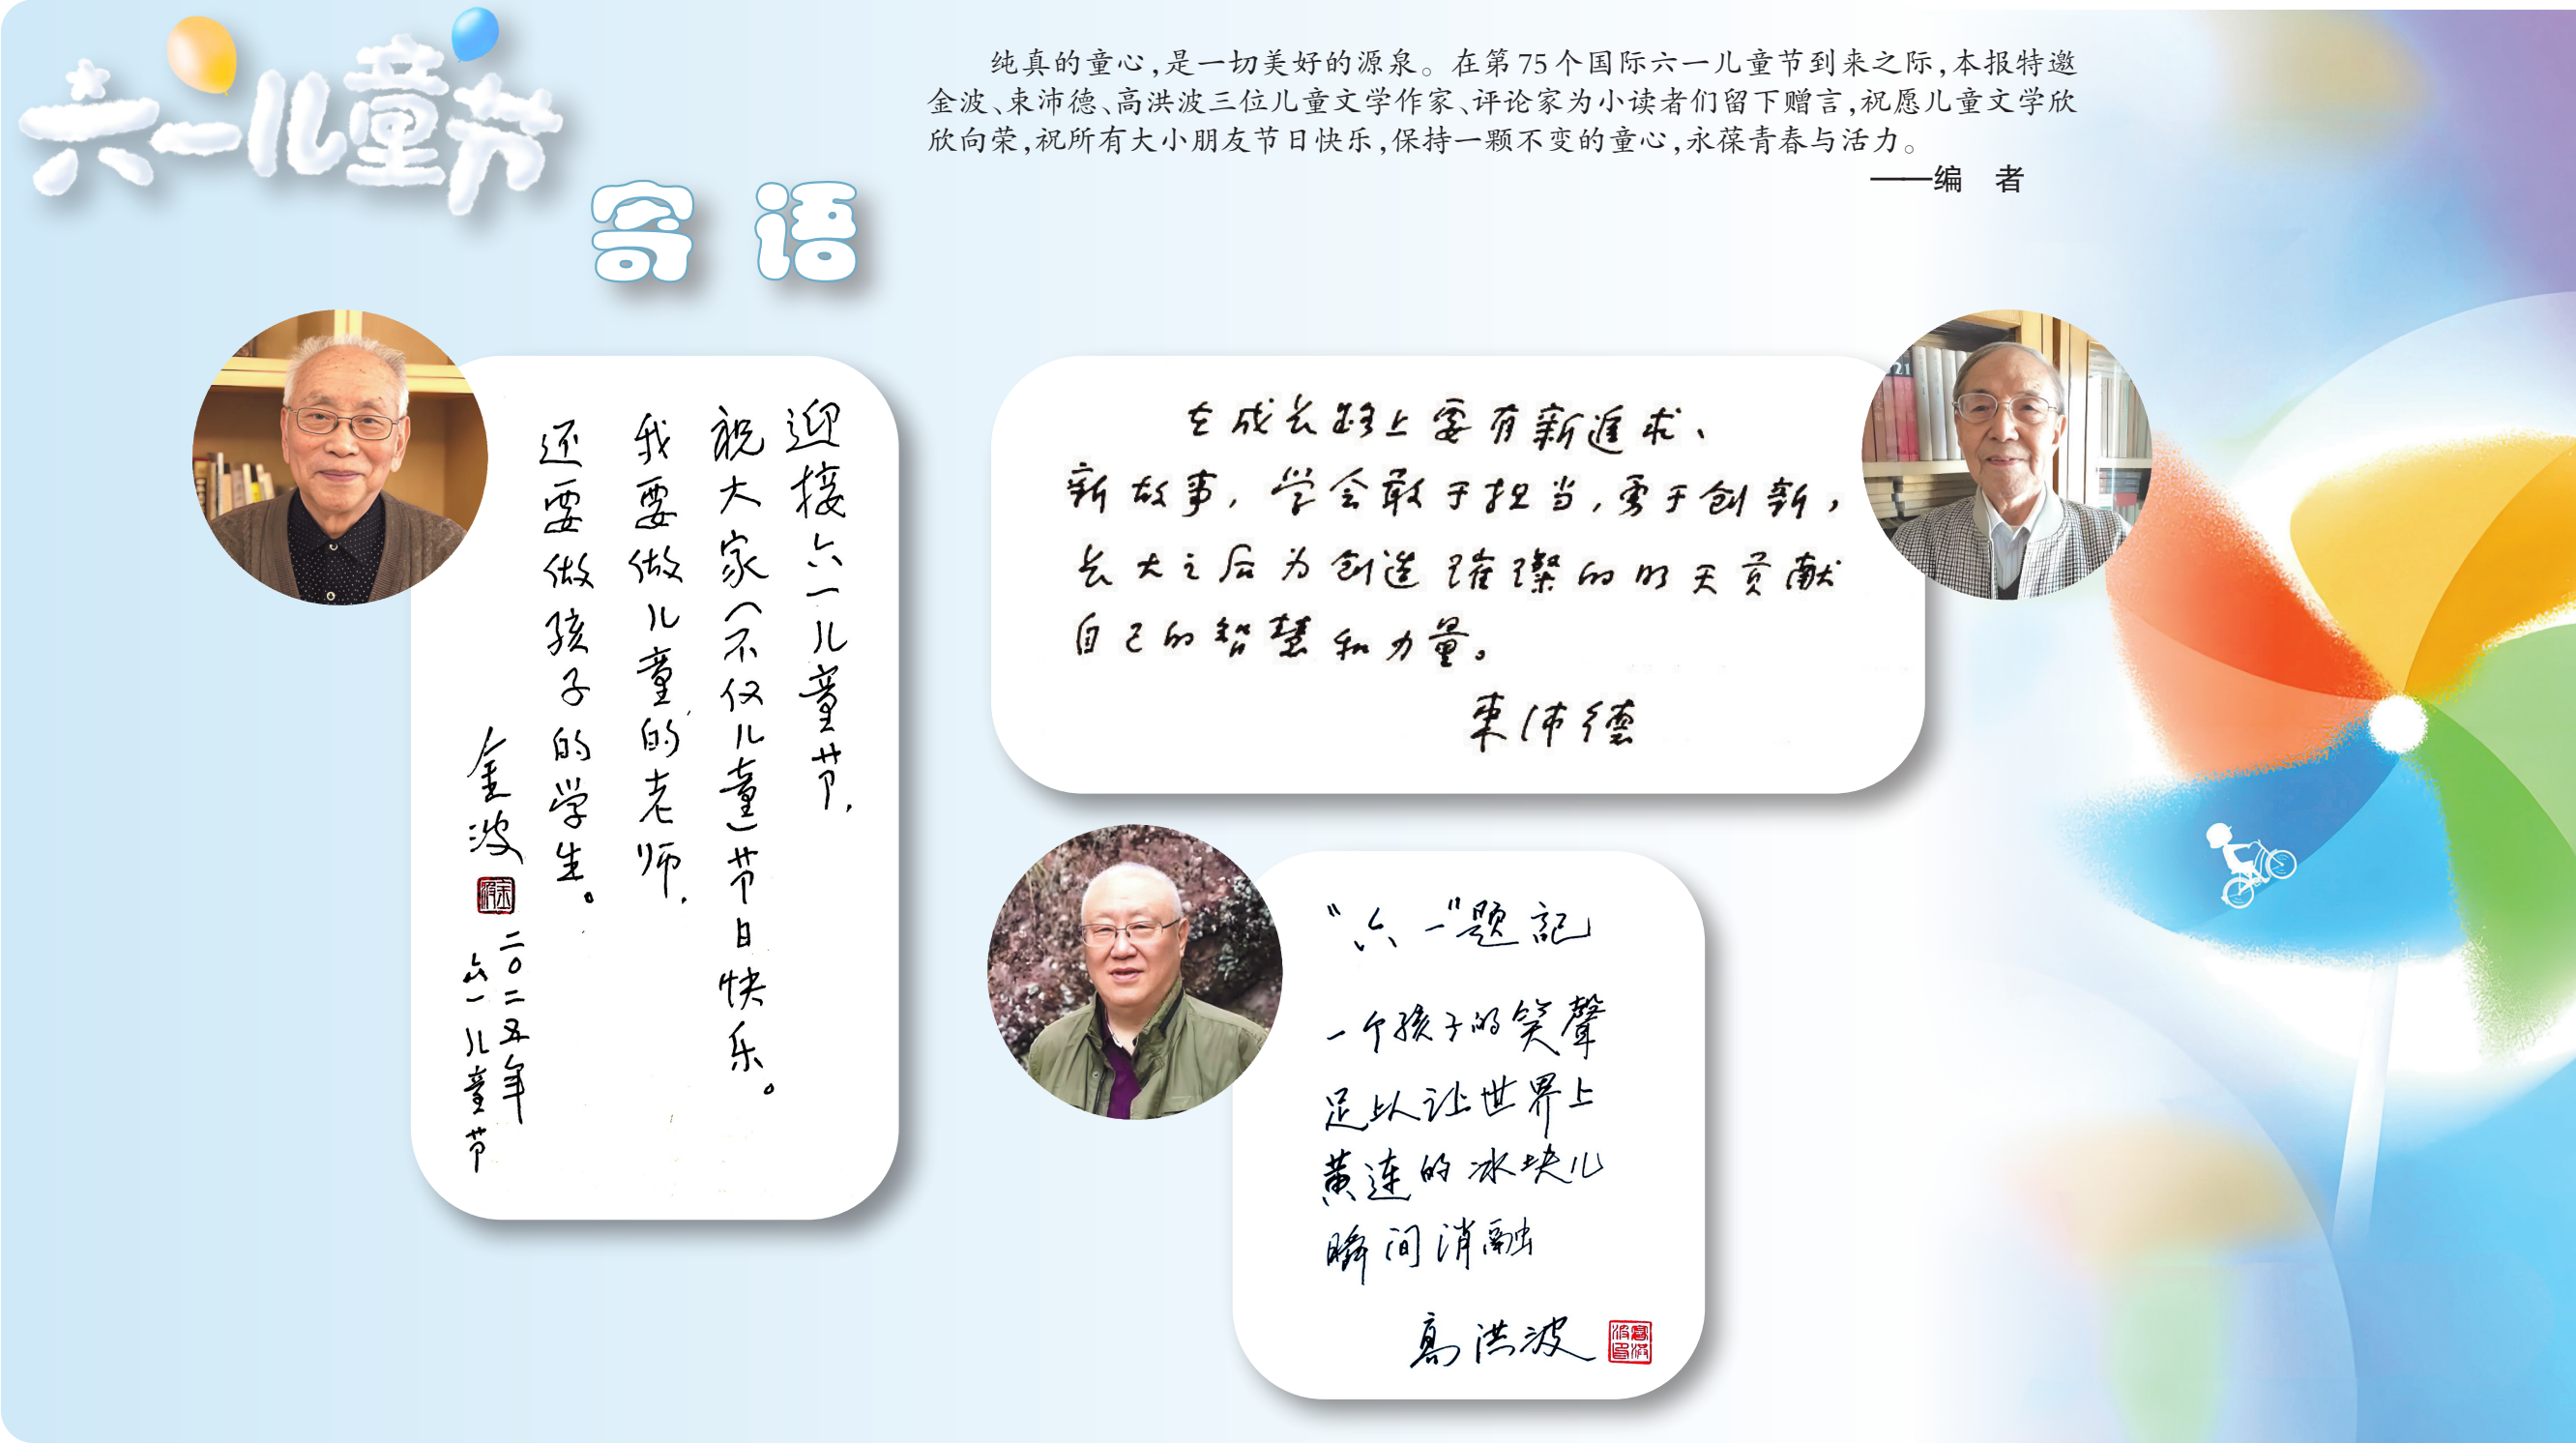 六一儿童节
寄语
纯真的童心,是一切美好的源泉。在第75个国际六一儿童节到来之际,本报特邀
金波、束沛德、高洪波三位儿童文学作家、评论家为小读者们留下赠言,祝愿儿童文学欣
欣向荣,祝所有大小朋友节日快乐,保持一颗不变的童心,永葆青春与活力。
——编 者
迎接六一儿童节,
祝大家(不仅儿童)节日快乐。
我要做儿童的老师,
还要做孩子的学生。
金波
金波
二〇二五年
六一儿童节
在成长路上要有新追求、
新故事,学会敢于担当,勇于创新,
长大之后为创造璀璨的明天贡献
自己的智慧和力量。
束沛德
“六一”题記
一个孩子的笑聲
足以让世界上
黄连的冰块儿
瞬间消融
高洪波
高洪波印